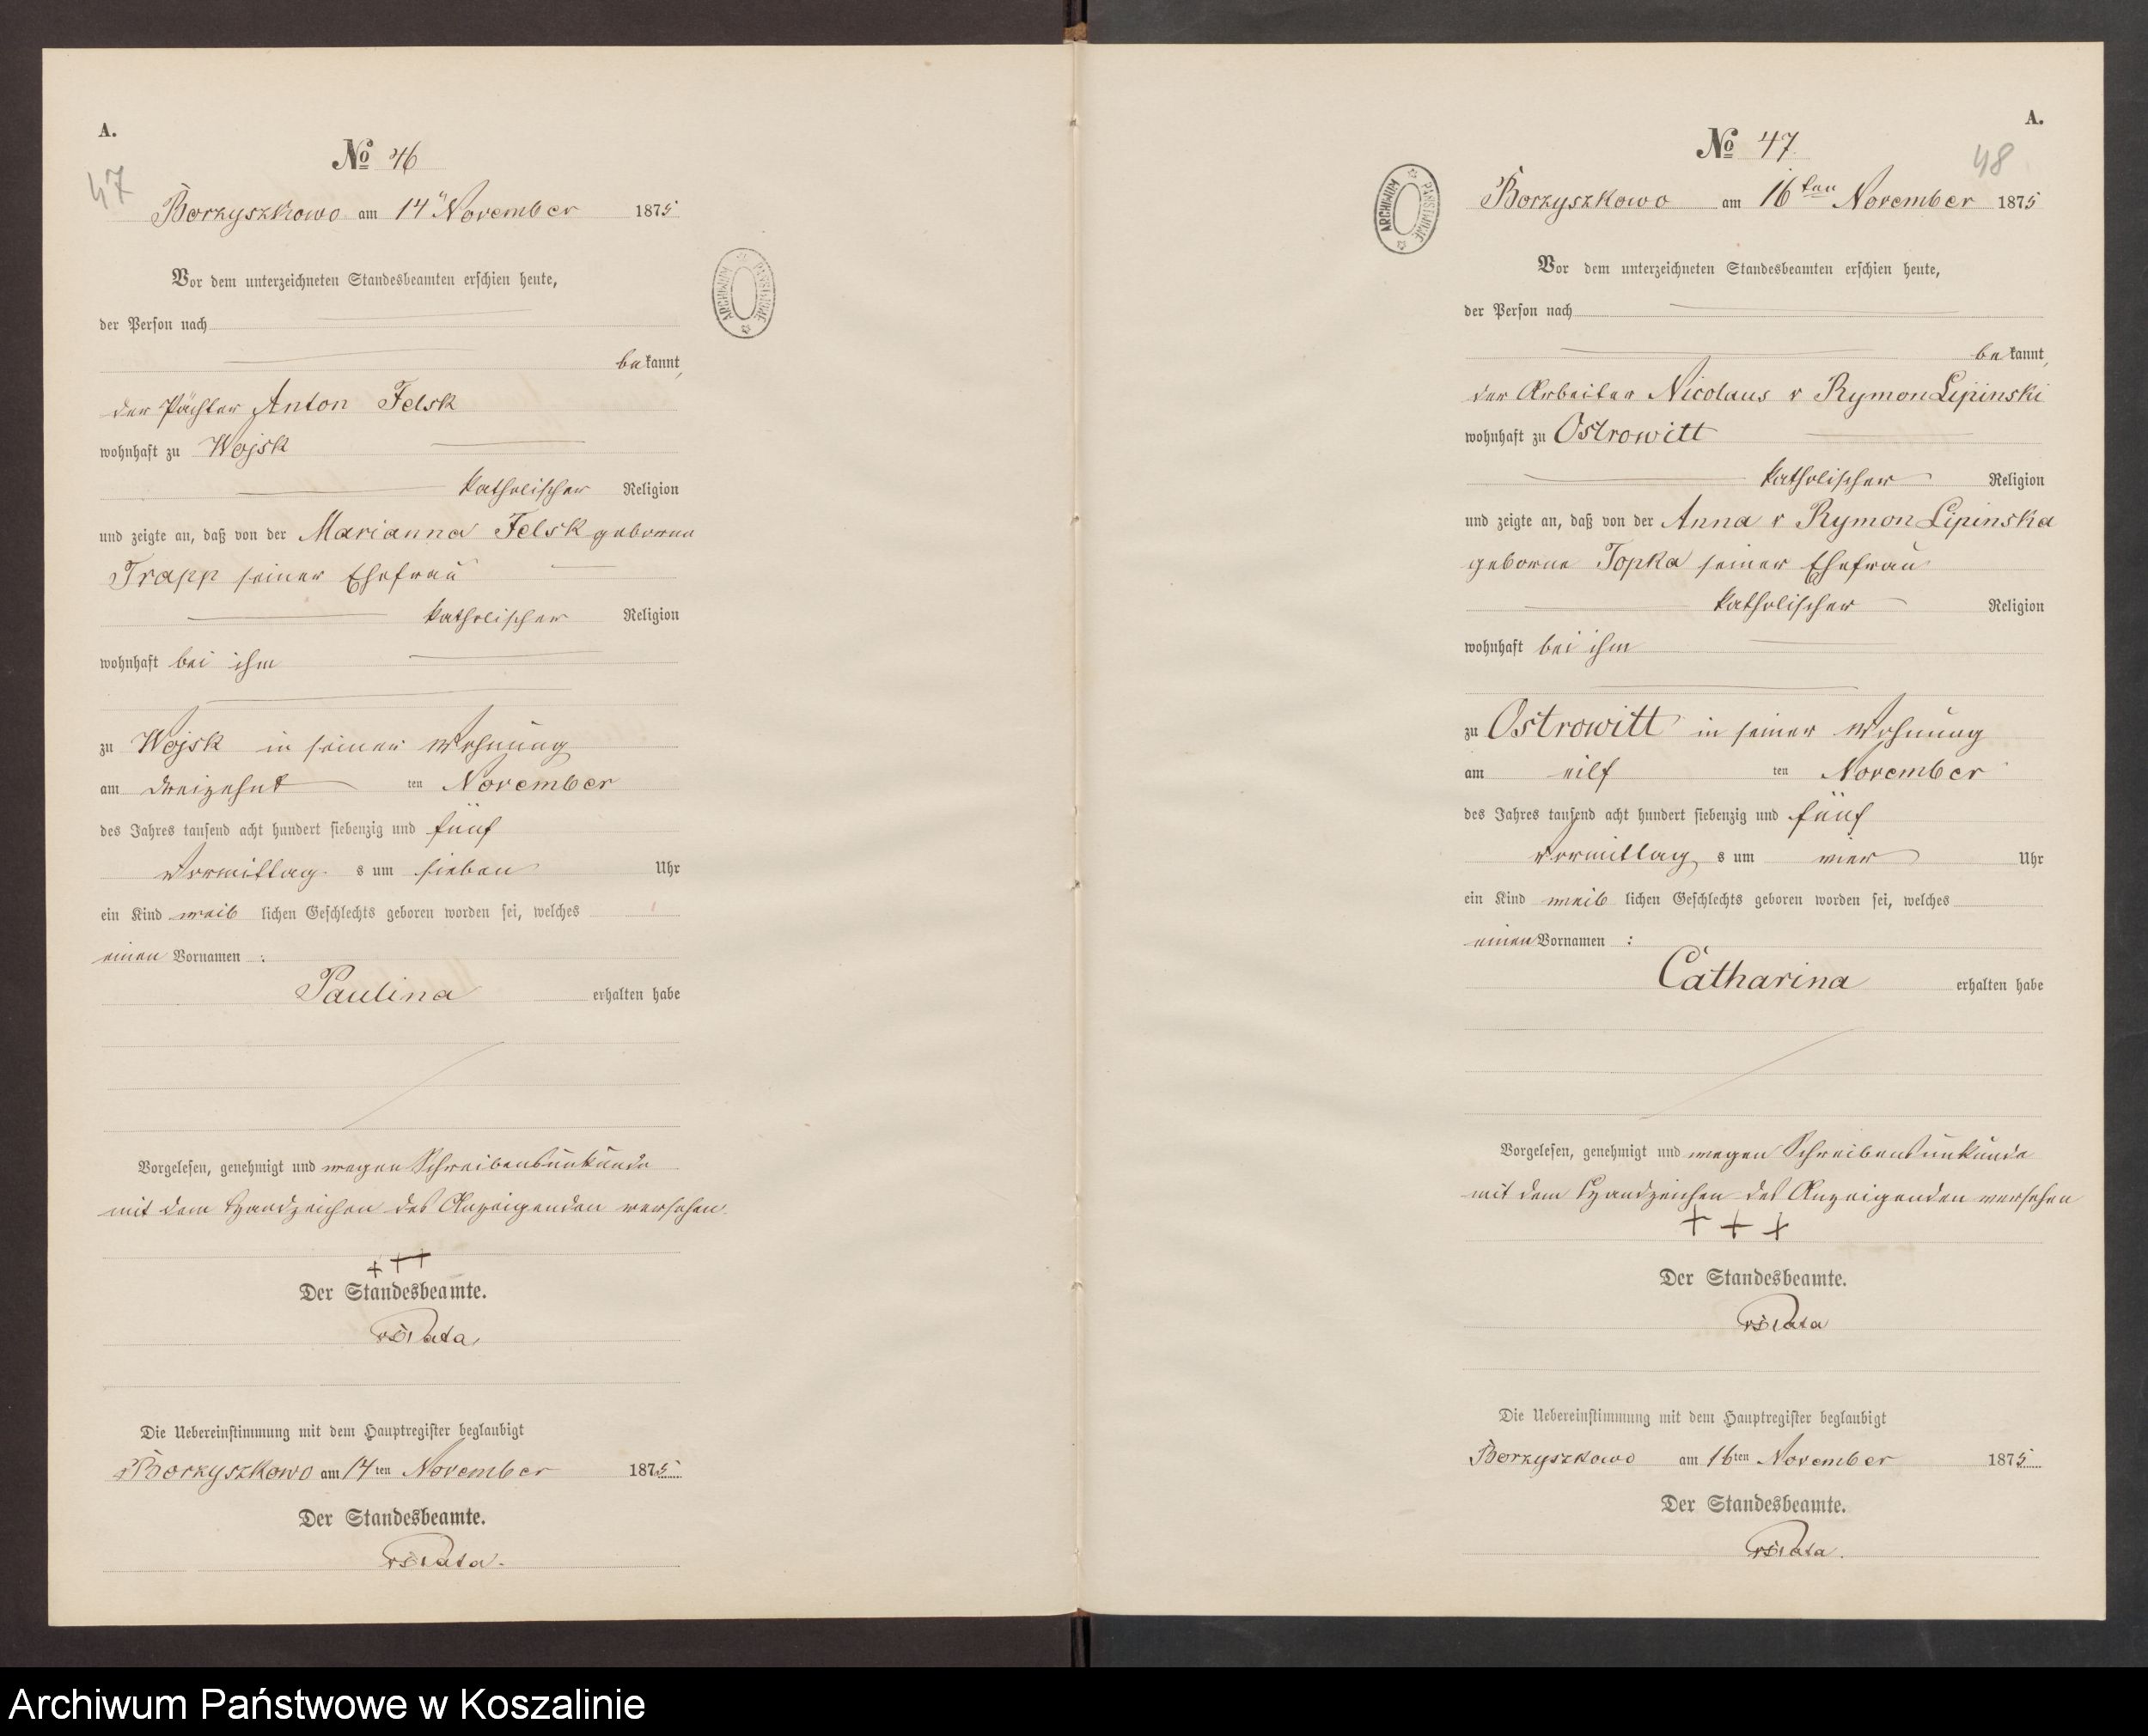 A.
No 46
47
Borzyszkowo am 14ten November 1875
Vor dem unterzeichneten Standesbeamten erschien heute,
der Person nach
bekannt,
der Pächter Anton Felsk
wohnhaft zu Wojsk
katholischer Religion
und zeigte an, daß von der Marianna Felsk geborne
Trapp seiner Ehefrau
katholischer Religion
wohnhaft bei ihm
zu Wojsk in seiner Wohnung
am dreizehnt ten November
des Jahres tausend acht hundert siebenzig und fünf
Vormittag s um sieben Uhr
ein Kind weib lichen Geschlechts geboren worden sei, welches
einen Vornamen :
Paulina erhalten habe
Vorgelesen, genehmigt und wegen Schreibensunkunde
mit dem Handzeichen des Anzeigenden versehen.
+ + +
Der Standesbeamte.
Die Uebereinstimmung mit dem Hauptregister beglaubigt
Borzyszkowo am 14ten November 1875
Der Standesbeamte.
ARCHIWUM PAŃSTWOWE
A.
No 47
48
Borzyszkowo am 16ten November 1875
Vor dem unterzeichneten Standesbeamten erschien heute,
der Person nach
bekannt,
der Arbeiter Nicolaus v Rymon Lipinski
wohnhaft zu Ostrowitt
katholischer Religion
und zeigte an, daß von der Anna v Rymon Lipinska
geborne Topka seiner Ehefrau
katholischer Religion
wohnhaft bei ihm
zu Ostrowitt in seiner Wohnung
am eilf ten November
des Jahres tausend acht hundert siebenzig und fünf
Vormittag s um vier Uhr
ein Kind weib lichen Geschlechts geboren worden sei, welches
einen Vornamen :
Catharina erhalten habe
Vorgelesen, genehmigt und wegen Schreibensunkunde
mit dem Handzeichen des Anzeigenden versehen
+ + +
Der Standesbeamte.
Die Uebereinstimmung mit dem Hauptregister beglaubigt
Borzyszkowo am 16ten November 1875
Der Standesbeamte.
ARCHIWUM PAŃSTWOWE
Archiwum Państwowe w Koszalinie